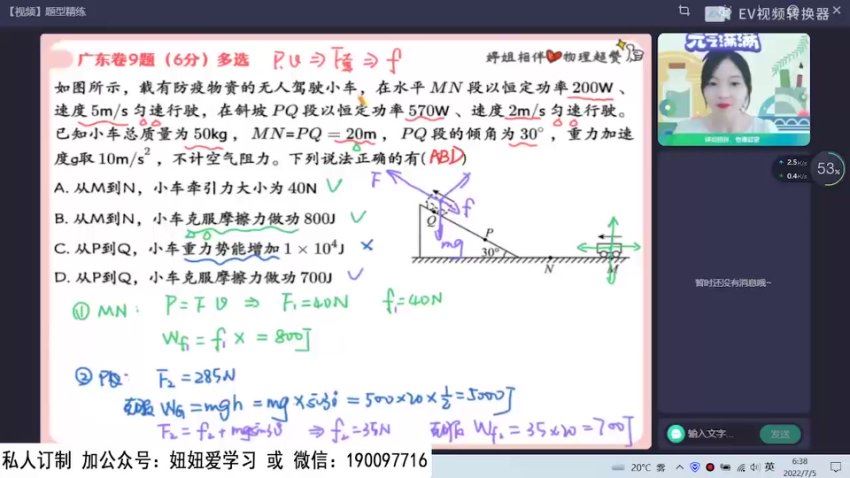 【视频】题型精练
EV视频转换器
广东卷9题（6分）多选
P.v ⇒ F牵 ⇒ f
婷姐相伴❤物理超赞
如图所示，载有防疫物资的无人驾驶小车，在水平 MN 段以恒定功率 200W、
速度 5m/s 匀速行驶，在斜坡 PQ 段以恒定功率 570W、速度 2m/s 匀速行驶。
已知小车总质量为 50kg，MN=PQ = 20m，PQ 段的倾角为 30°，重力加速
度g取 10m/s²，不计空气阻力。下列说法正确的有(ABD)
A. 从M到N，小车牵引力大小为 40N √
B. 从M到N，小车克服摩擦力做功 800J √
C. 从P到Q，小车重力势能增加 1 × 10⁴J ×
D. 从P到Q，小车克服摩擦力做功 700J √
F
f
Q
mg
P
30°
N
M
① MN: P = Fv ⇒ F₁=40N f₁=40N
Wf₁ = f₁ x = 800J
② PQ: F₂ = 285N
克服 WG = mgh = mg x sin30 = 500×20×½ = 5000J
F₂ = f₂ + mgsin30 ⇒ f₂=35N 克服 Wf₂ = 35×20 = 700J
2.5K/s
0.4K/s
53%
暂时还没有消息哦~
输入文字...
发送
私人订制 加公众号：妞妞爱学习 或 微信：190097716
20°C 雾
英
6:38
2022/7/5